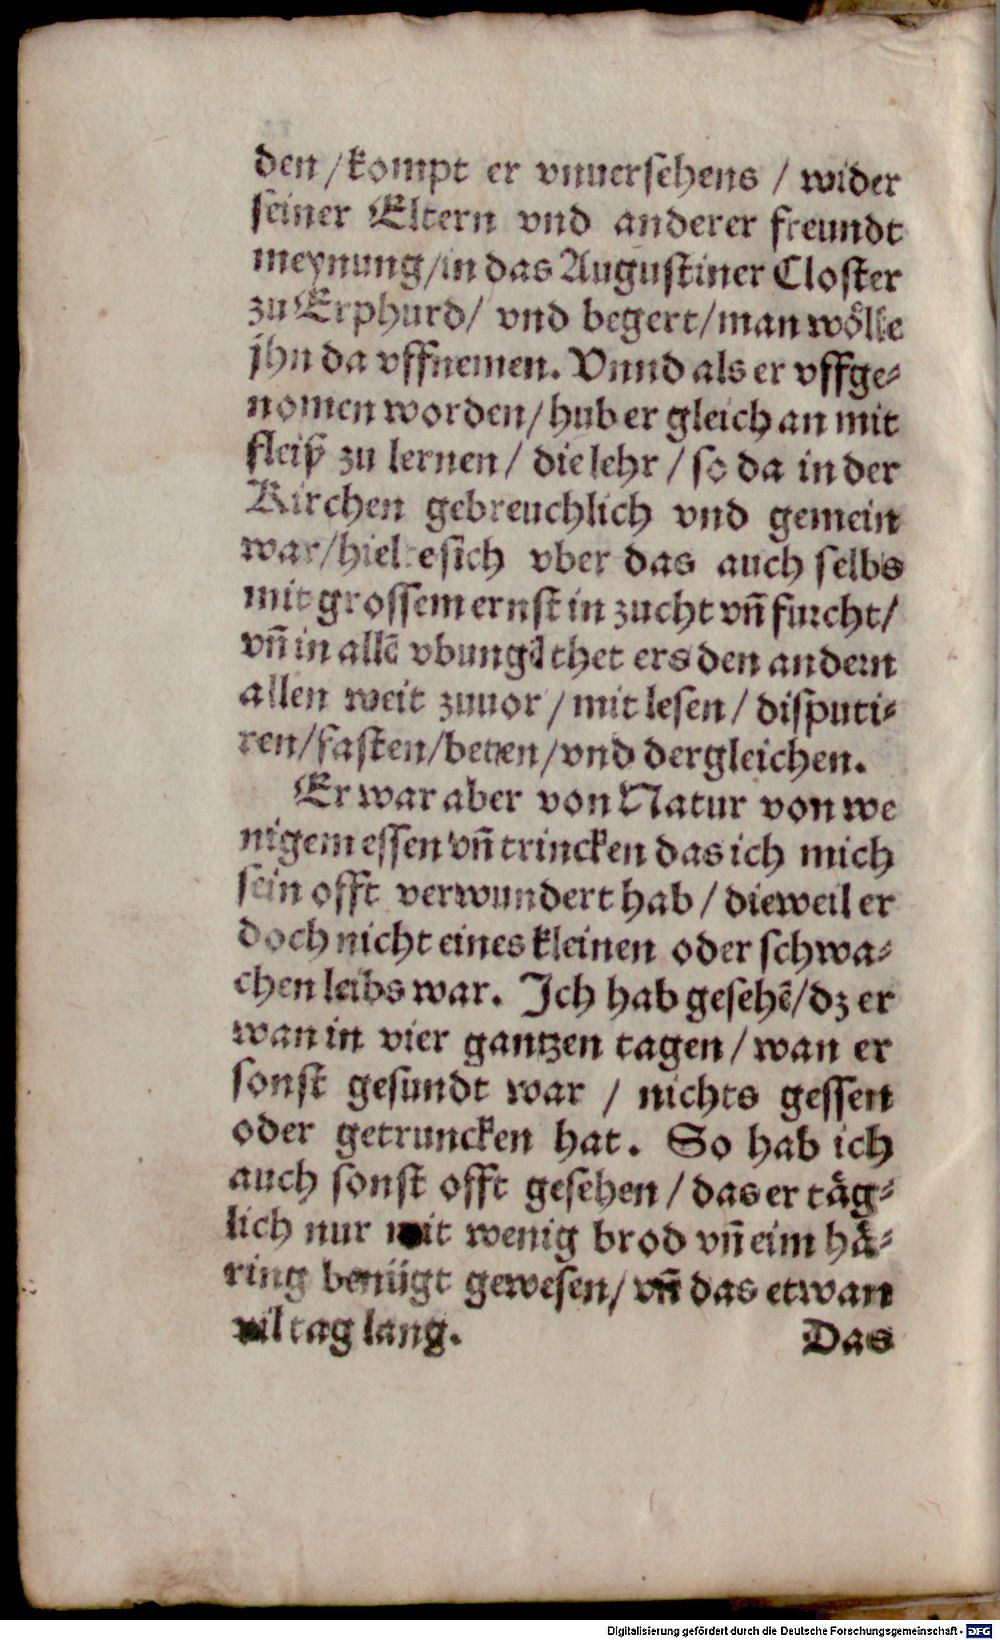 den / kompt er vnuersehens / wider
seiner Eltern vnd anderer freundt
meynung / in das Augustiner Closter
zu Erphurd / vnd begert / man wölle
jhn da vffnemen. Vnnd als er vffge⸗
nomen worden / hub er gleich an mit
fleiß zu lernen / die lehr / so da in der
Kirchen gebreuchlich vnd gemein
war / hielte sich vber das auch selbs
mit grossem ernst in zucht vñ furcht /
vñ in allē vbungē thet ers den andern
allen weit zuuor / mit lesen / disputi⸗
ren / fasten / beten / vnd dergleichen.
Er war aber von Natur von we
nigem essen vñ trincken das ich mich
sein offt verwundert hab / dieweil er
doch nicht eines kleinen oder schwa⸗
chen leibs war. Ich hab gesehē / dz er
wan in vier gantzen tagen / wan er
sonst gesundt war / nichts gessen
oder getruncken hat. So hab ich
auch sonst offt gesehen / das er täg⸗
lich nur mit wenig brod vñ eim hä⸗
ring benügt gewesen / vñ das etwan
vil tag lang. Das
Digitalisierung gefördert durch die Deutsche Forschungsgemeinschaft - DFG